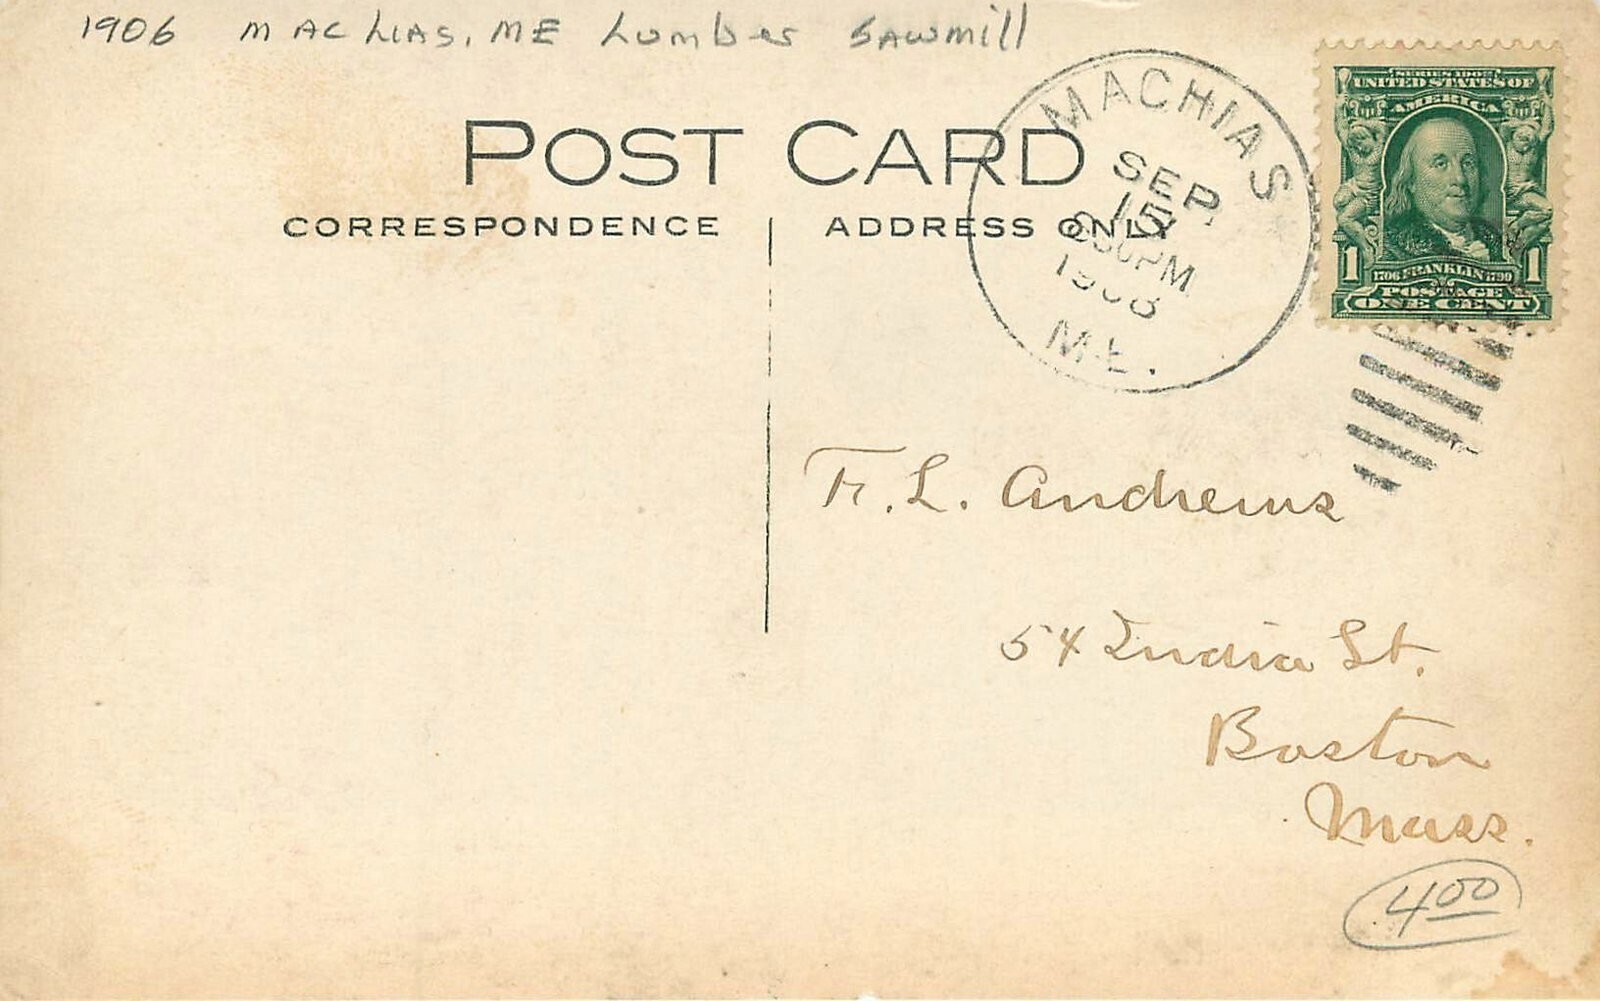 1906 MACHIAS, ME Lumber SAWMill
POST CARD
CORRESPONDENCE
ADDRESS ONLY
MACHIAS
SEP.
15
30PM
1908
ME.
SERIES 1902
UNITED STATES OF
AMERICA
1 1
1706 FRANKLIN 1790
POSTAGE
ONE CENT
F. L. Andrews
54 India St.
Boston
Mass.
4.00